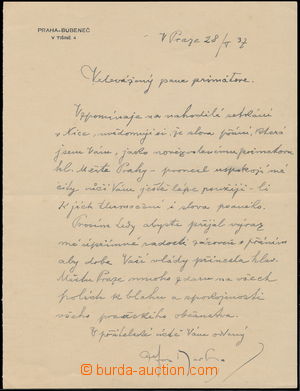 PRAHA-BUBENEČ
V TIŠINĚ 4
V Praze 28/V 37
Velevážený pane primátore.
Vzpomínaje na nahodilé setkání
v Nice, uvědomuji si, že slova přání, která
jsem Vám, jako novozvolenému primátorovi
hl. Města Prahy - pronesl uspokojí mé
city vůči Vám ještě lépe použiji-li
k jich tlumočení i slova psaného.
Prosím tedy abyste přijal výraz
mé upřímné radosti zároveň s přáním
aby doba Vaší vlády přinesla hlav.
Městu Praze mnoho zdaru na všech
polích k blahu a spokojenosti
všeho pražského občanstva.
V přátelské úctě Vám oddaný
burda-auction.com